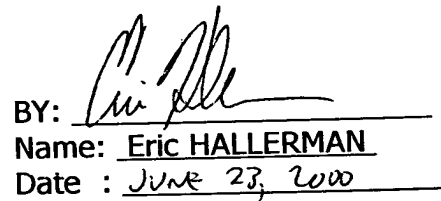 BY:
Name: Eric HALLERMAN
Date : JUNE 23, 2000